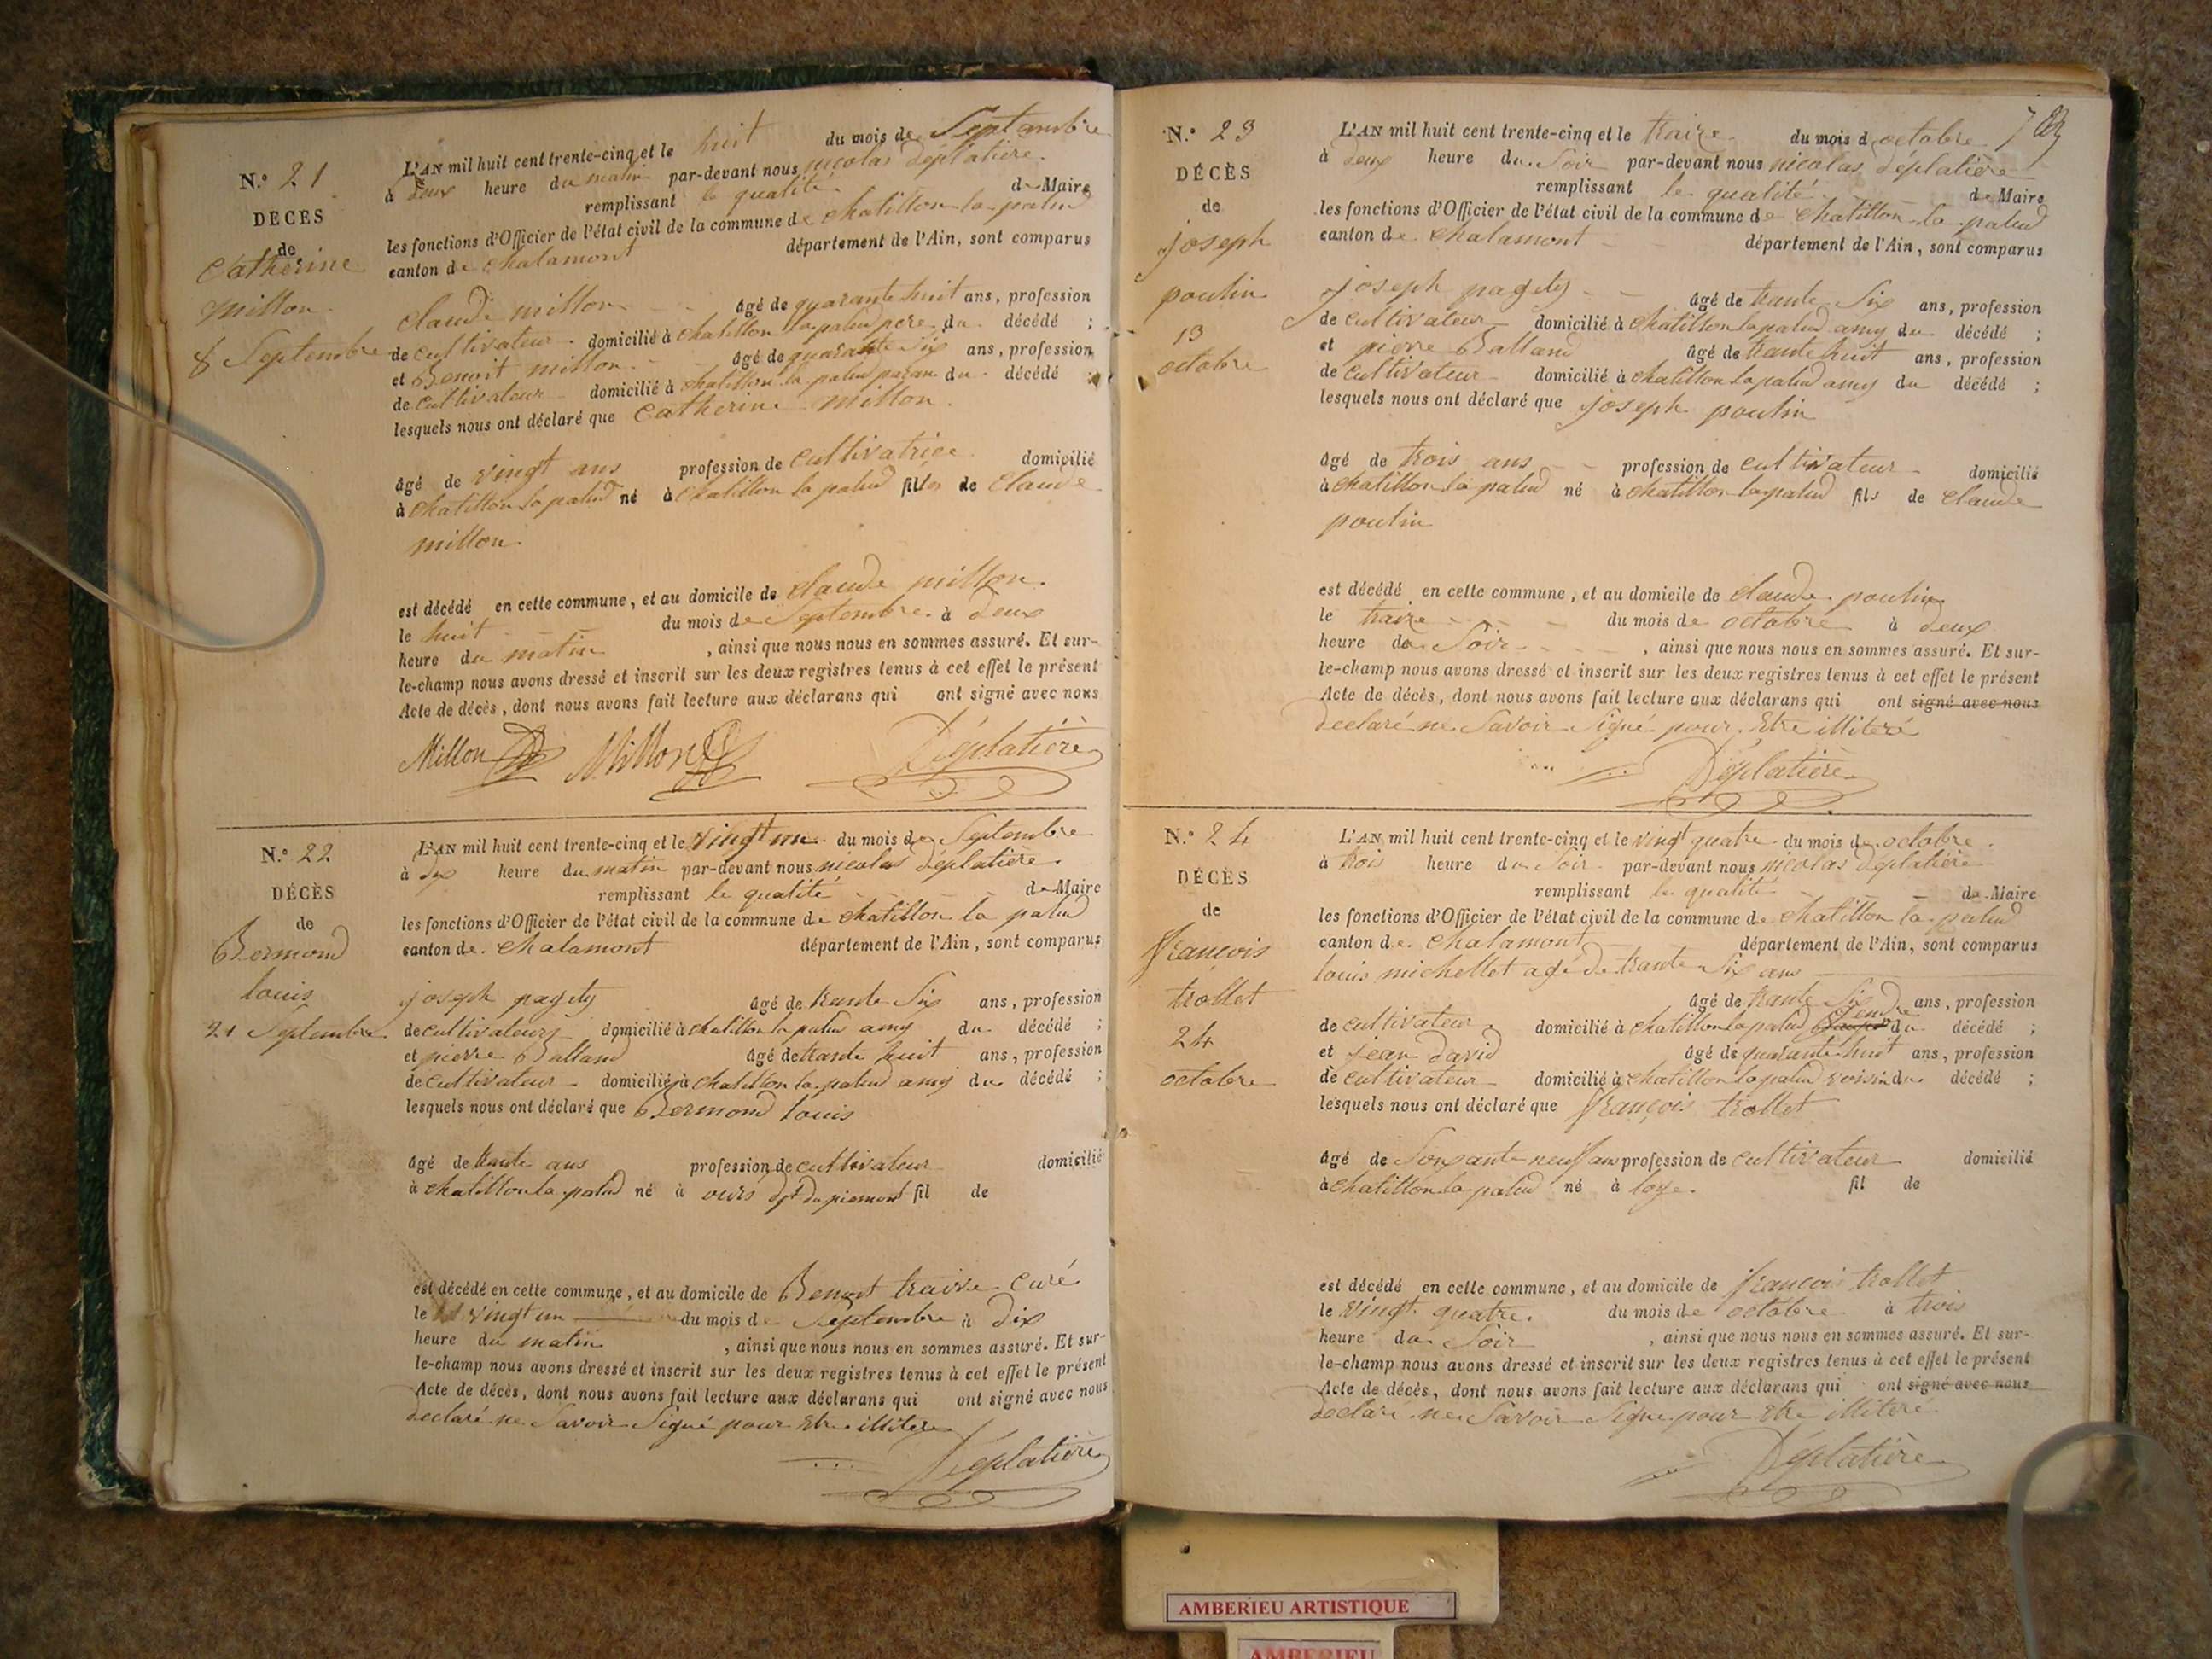 N.° 21
DÉCÈS
de
Catherine
Millon
8 Septembre
L'AN mil huit cent trente-cinq et le huit du mois de Septembre
à deux heure du matin par-devant nous nicolas déplatière
remplissant la qualité de Maire
les fonctions d'Officier de l'état civil de la commune de chatillon la palud
canton de chalamont département de l'Ain, sont comparus
claude millon âgé de quarante huit ans, profession
de cultivateur domicilié à chatillon la palud pere du décédé ;
et Benoit millon âgé de quarante six ans, profession
de cultivateur domicilié à chatillon la palud paran du décédé ;
lesquels nous ont déclaré que Catherine Millon
âgé de vingt ans profession de cultivatrice domicilié
à chatillon la palud né à chatillon la palud fille de Claude
millon
est décédé en cette commune, et au domicile de claude millon
le huit du mois de Septembre à deux
heure du matin , ainsi que nous nous en sommes assuré. Et sur-
le-champ nous avons dressé et inscrit sur les deux registres tenus à cet effet le présent
Acte de décès, dont nous avons fait lecture aux déclarans qui ont signé avec nous
Millon Millon Déplatière
N.° 22
DÉCÈS
de
Bermond
louis
21 Septembre
L'AN mil huit cent trente-cinq et le vingt un du mois de Septembre
à dix heure du matin par-devant nous nicolas déplatière
remplissant la qualité de Maire
les fonctions d'Officier de l'état civil de la commune de chatillon la palud
canton de chalamont département de l'Ain, sont comparus
joseph pagety âgé de trante Six ans, profession
de cultivateur domicilié à chatillon la palud amy du décédé ;
et pierre Balland âgé de trante huit ans, profession
de cultivateur domicilié à chatillon la palud amy du décédé ;
lesquels nous ont déclaré que Bermond louis
âgé de trante ans profession de cultivateur domicilié
à chatillon la palud né à dpt du piemont fil de
est décédé en cette commune, et au domicile de Benoit curé
le vingt un du mois de Septembre à dix
heure du matin , ainsi que nous nous en sommes assuré. Et sur-
le-champ nous avons dressé et inscrit sur les deux registres tenus à cet effet le présent
Acte de décès, dont nous avons fait lecture aux déclarans qui ont signé avec nous
declaré ne Savoir Signé pour Etre illiteré
Déplatière
N.° 23
DÉCÈS
de
joseph
poulin
13
octobre
L'AN mil huit cent trente-cinq et le traize du mois d octobre
à deux heure du Soir par-devant nous nicolas déplatière
remplissant la qualité de Maire
les fonctions d'Officier de l'état civil de la commune de chatillon la palud
canton de chalamont département de l'Ain, sont comparus
joseph pagety âgé de trante Six ans, profession
de cultivateur domicilié à chatillon la palud amy du décédé ;
et pierre Balland âgé de trante huit ans, profession
de cultivateur domicilié à chatillon la palud amy du décédé ;
lesquels nous ont déclaré que joseph poulin
âgé de trois ans profession de cultivateur domicilié
à chatillon la palud né à chatillon la palud fils de claude
poulin
est décédé en cette commune, et au domicile de claude poulin
le traize du mois de octobre à deux
heure du Soir , ainsi que nous nous en sommes assuré. Et sur-
le-champ nous avons dressé et inscrit sur les deux registres tenus à cet effet le présent
Acte de décès, dont nous avons fait lecture aux déclarans qui ont signé avec nous
declaré ne Savoir Signé pour Etre illiteré
Déplatière
N.° 24
DÉCÈS
de
françois
trollet
24
octobre
L'AN mil huit cent trente-cinq et le vingt quatre du mois d octobre
à trois heure du Soir par-devant nous nicolas déplatière
remplissant la qualité de Maire
les fonctions d'Officier de l'état civil de la commune de chatillon la palud
canton de chalamont département de l'Ain, sont comparus
louis michellet agé de trante Six ans
âgé de trante Six ans, profession
de cultivateur domicilié à chatillon la palud gendre du décédé ;
et jean david âgé de quarante huit ans, profession
de cultivateur domicilié à chatillon la palud voisin du décédé ;
lesquels nous ont déclaré que françois trollet
âgé de Soixante neuf ans profession de cultivateur domicilié
à chatillon la palud né à loye fil de
est décédé en cette commune, et au domicile de françois trollet
le vingt quatre du mois de octobre à trois
heure du Soir , ainsi que nous nous en sommes assuré. Et sur-
le-champ nous avons dressé et inscrit sur les deux registres tenus à cet effet le présent
Acte de décès, dont nous avons fait lecture aux déclarans qui ont signé avec nous
declaré ne Savoir Signe pour Etre illiteré
Déplatière
AMBERIEU ARTISTIQUE
AMBERIEU